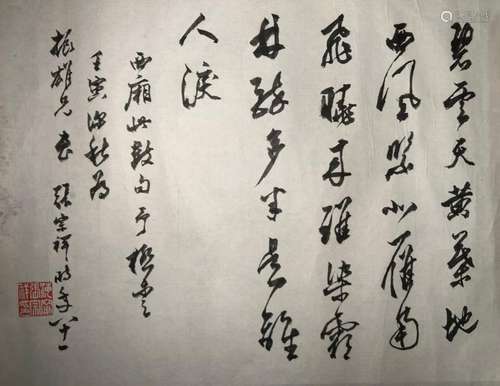 碧雲天黃葉地
西風緊北雁南
飛曉來誰染霜
林醉多半是離
人淚
西廂此數句予極
壬寅深秋為
振雄兄書 張宗祥時年八十一